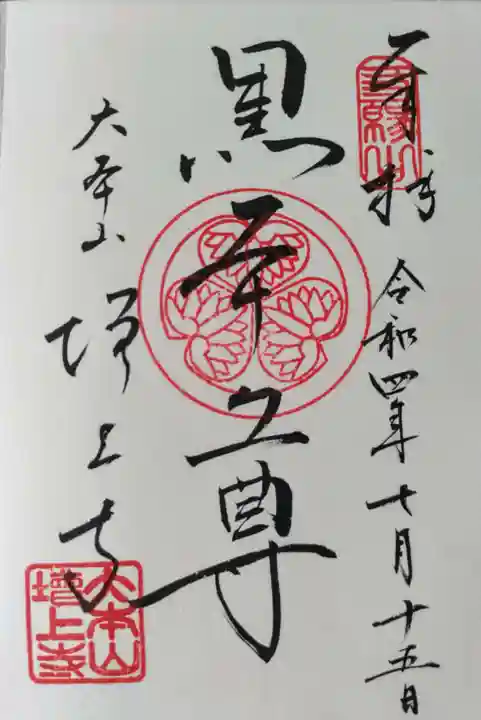 奉拝 令和四年七月十五日
黒本尊
大本山 増上寺
大本山
増上寺